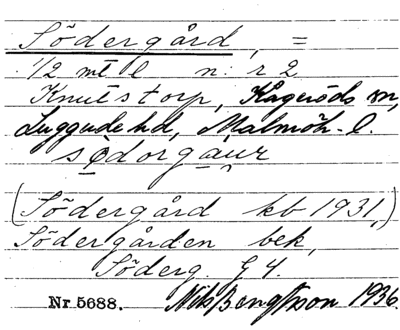 Södergård, =
1/2 mtl n: r 2
Knutstorp, Kågeröds sn,
Luggude hd, Malmöh. l.
sǫdorgaur
(Södergård kb 1931,)
Södergården bek,
Söderg. G 4.
Nr 5688. Nils Bengtsson 1936.